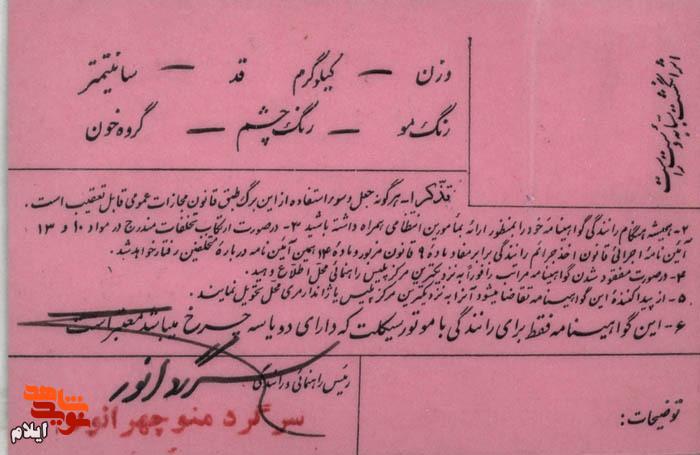 وزن — کیلوگرم قد — سانتیمتر
رنگ مو — رنگ چشم — گروه خون
اثر انگشت سبابه دست راست
تذکر ۱- هرگونه جعل و سوء استفاده از این برگ طبق قانون مجازات عمومی قابل تعقیب است.
۲- همیشه هنگام رانندگی گواهینامه خود را بمنظور ارائه بمأمورین انتظامی همراه داشته باشید ۳- درصورت ارتکاب تخلفات مندرج در مواد ۱۰ و ۱۳
آئین نامه اجرائی قانون اخذ جرائم رانندگی برابر مفاد ماده ۹ قانون مزبور و ماده ۱۴ همین آئین نامه درباره متخلفین رفتار خواهد شد.
۴- درصورت مفقود شدن گواهینامه مراتب را فوراً به نزدیکترین مرکز پلیس راهنمائی محل اطلاع دهید.
۵- از پیدا کننده این گواهینامه تقاضا میشود آنرا به نزدیکترین مرکز پلیس یا ژاندارمری محل تحویل نمایند.
۶- این گواهینامه فقط برای رانندگی با موتورسیکلت که دارای دو یا سه چرخ میباشد معتبر است
رئیس راهنمائی و رانندگی
سرگرد انور
سرگرد منوچهر انو
توضیحات:
شاهد
نوید
ایلام